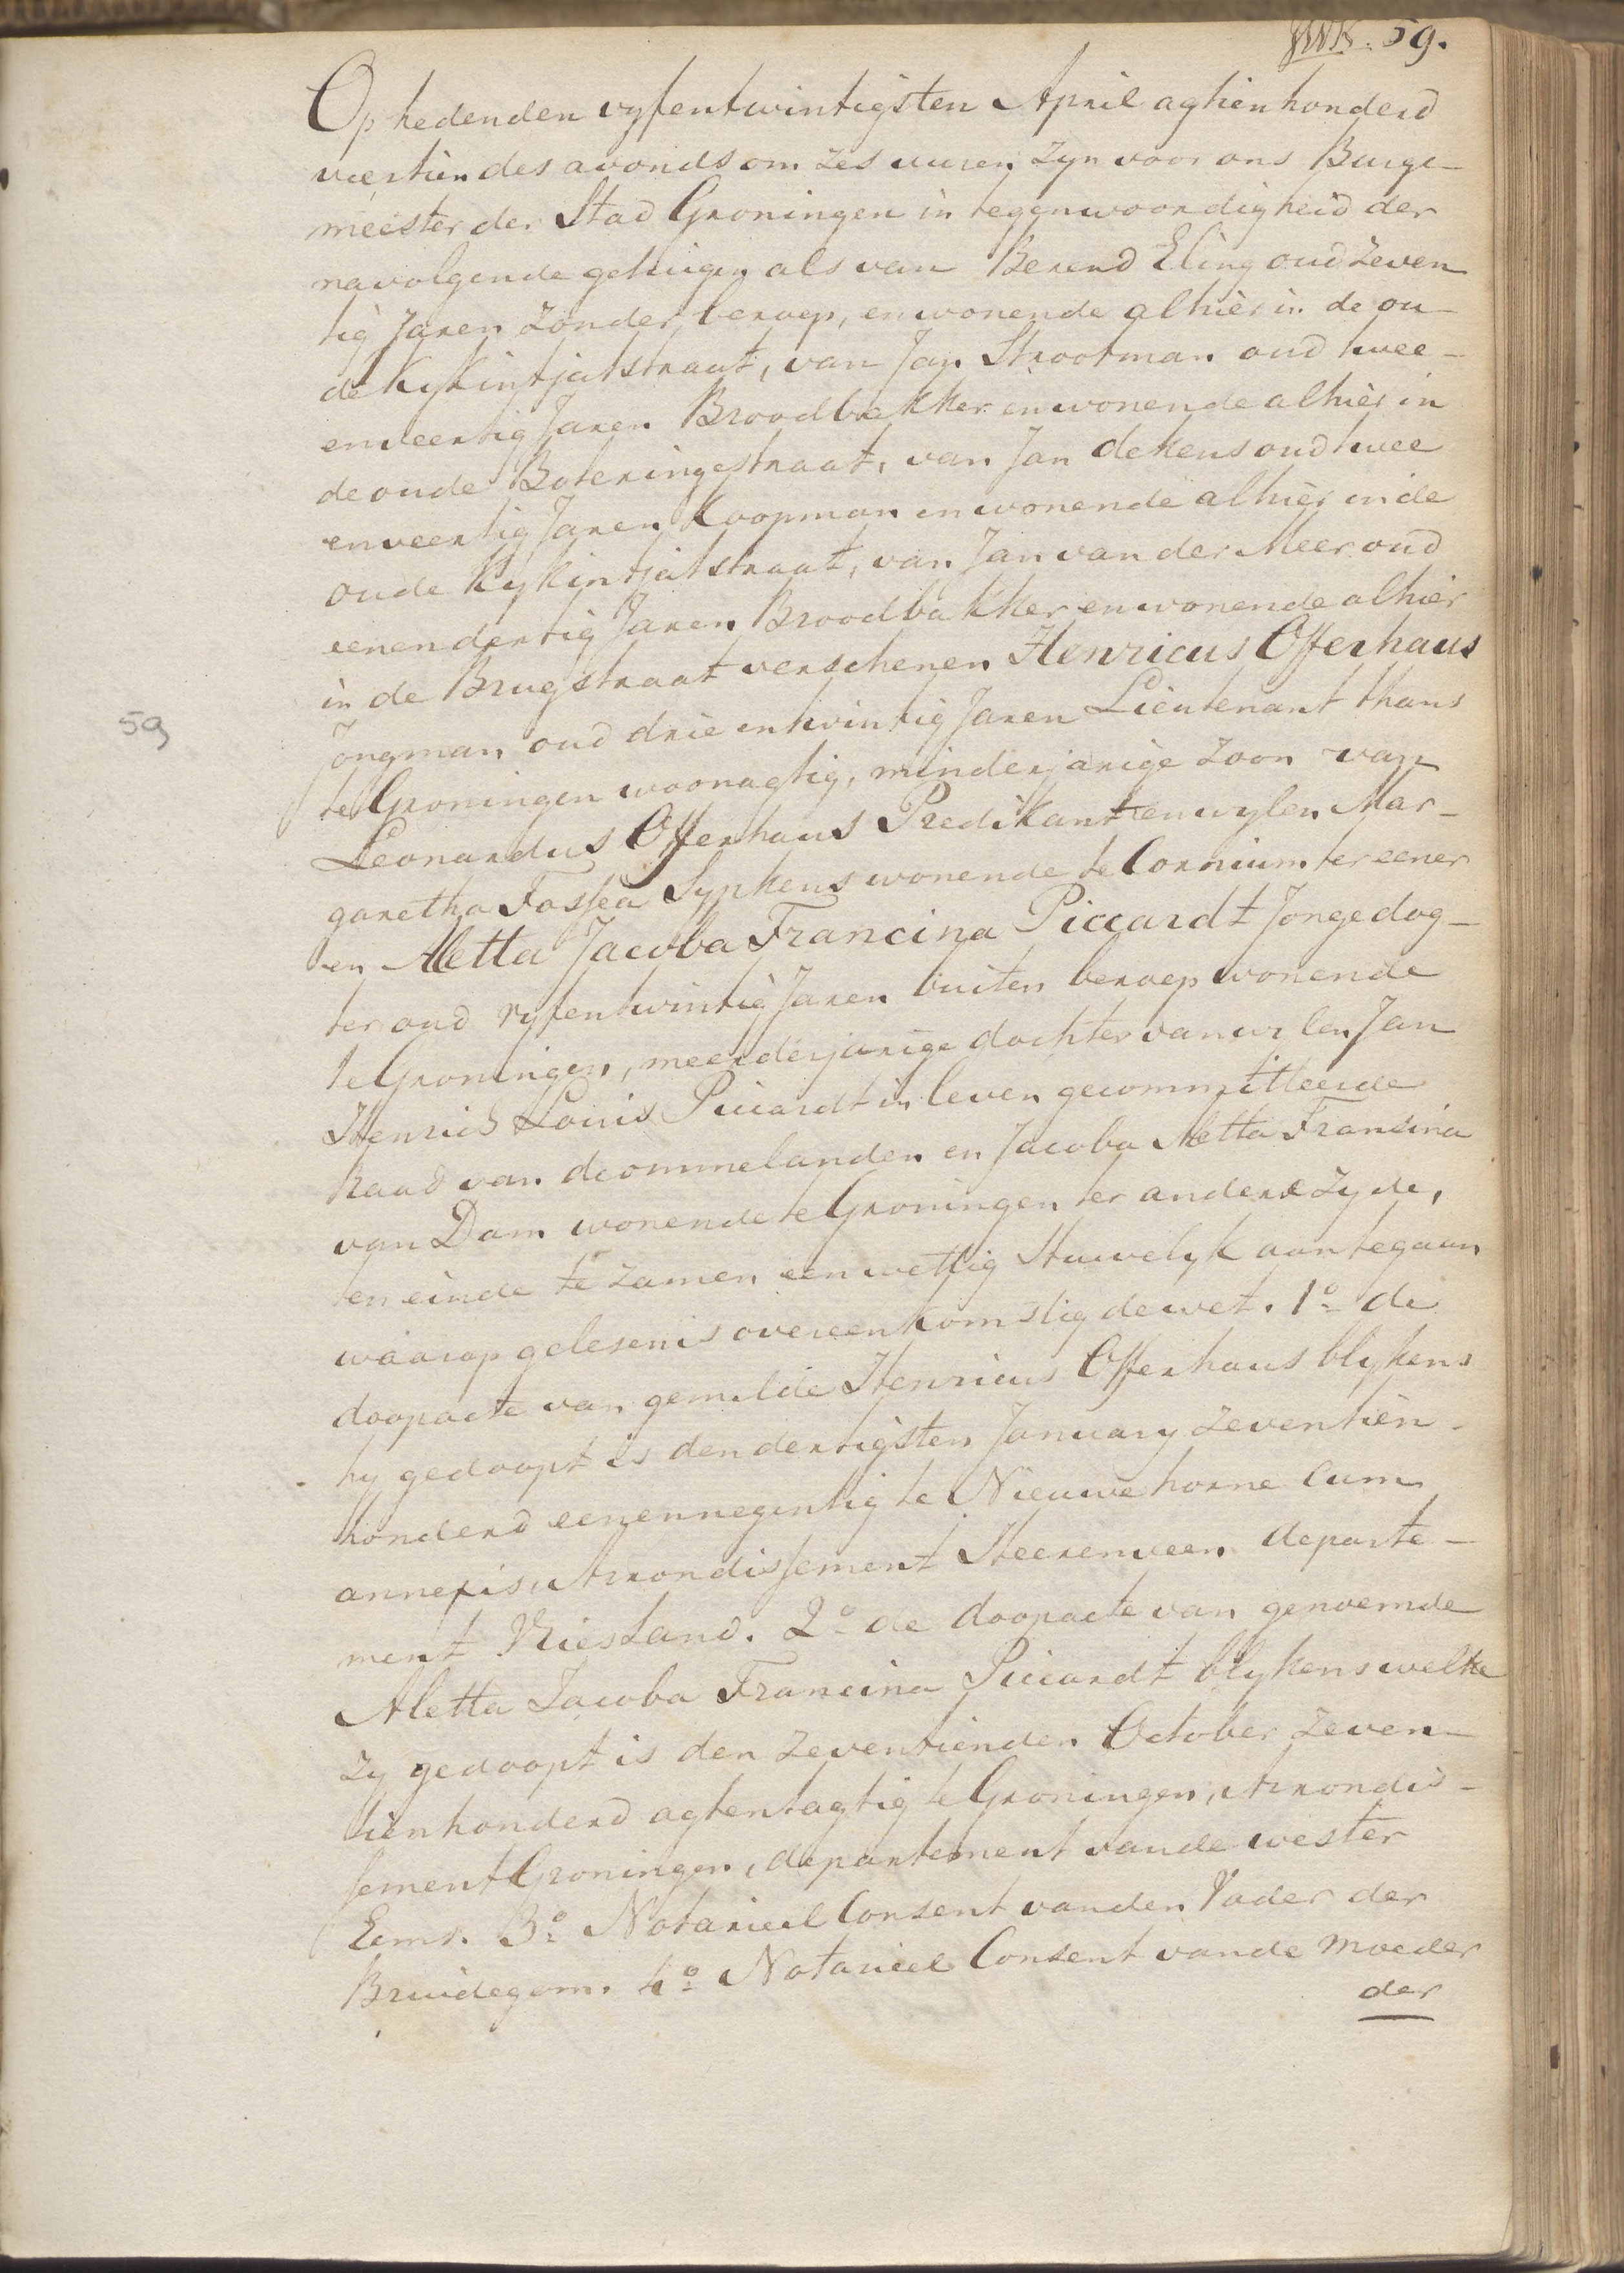 JWK. 59.
Op heden den vyfentwintigsten April agtien honderd
viertien des avonds om zes uuren zyn voor ons Burge-
meester der Stad Groningen in tegenwoordigheid der
navolgende getuigen als van Berend Eling oud zeven
tig Jaren zonder beroep, en wonende alhier in de ou-
de Kykintjatstraat, van Jan Strootman oud twee-
enveertig Jaren Broodbakker en wonende alhier in
de oude Boteringestraat, van Jan dekens oud twee
enveertig Jaren Koopman en wonende alhier in de
oude Kykintjatstraat, van Jan van der Meer oud
eenendertig Jaren Broodbakker en wonende alhier
in de Brugstraat verschenen Henricus Offerhaus
59
Jongman oud drie entwintig Jaren Lieutenant thans
te Groningen woonagtig, minderjarige zoon van
Leonardus Offerhaus Predikant en wylen Mar-
garetha Fossea Sypkens wonende te Cornium ter eener
en Aletta Jacoba Francina Piccardt Jongedog-
ter oud vyfentwintig Jaren buiten beroep wonende
te Groningen, meerderjarige dochter van wylen Jan
Henrich Louis Piccardt in leven gecommitteerde
Raad van de ommelanden en Jacoba Aletta Fransina
van Dam wonende te Groningen ter andere zyde,
ten einde te zamen een wettig Huwelyk aantegaan
waarop gelesen is overeenkomstig de wet. 1o de
doopacte van gemelde Henricus Offerhaus blykens
hy gedoopt is den dertigsten January zeventien-
honderd eenennegentig te Nieuwehorne cum
annexis, Arrondissement Heerenveen departe-
ment Vriesland. 2o de doopacte van genoemde
Aletta Jacoba Francina Piccardt blykens welke
zy gedoopt is den zeventienden October zeven-
tienhonderd agtentagtig te Groningen, Arrondis-
sement Groningen, departement vande wester
Eems. 3o Notarieel Consent vanden Vader der
Bruidegom. 4o Notarieel Consent vande moeder
der